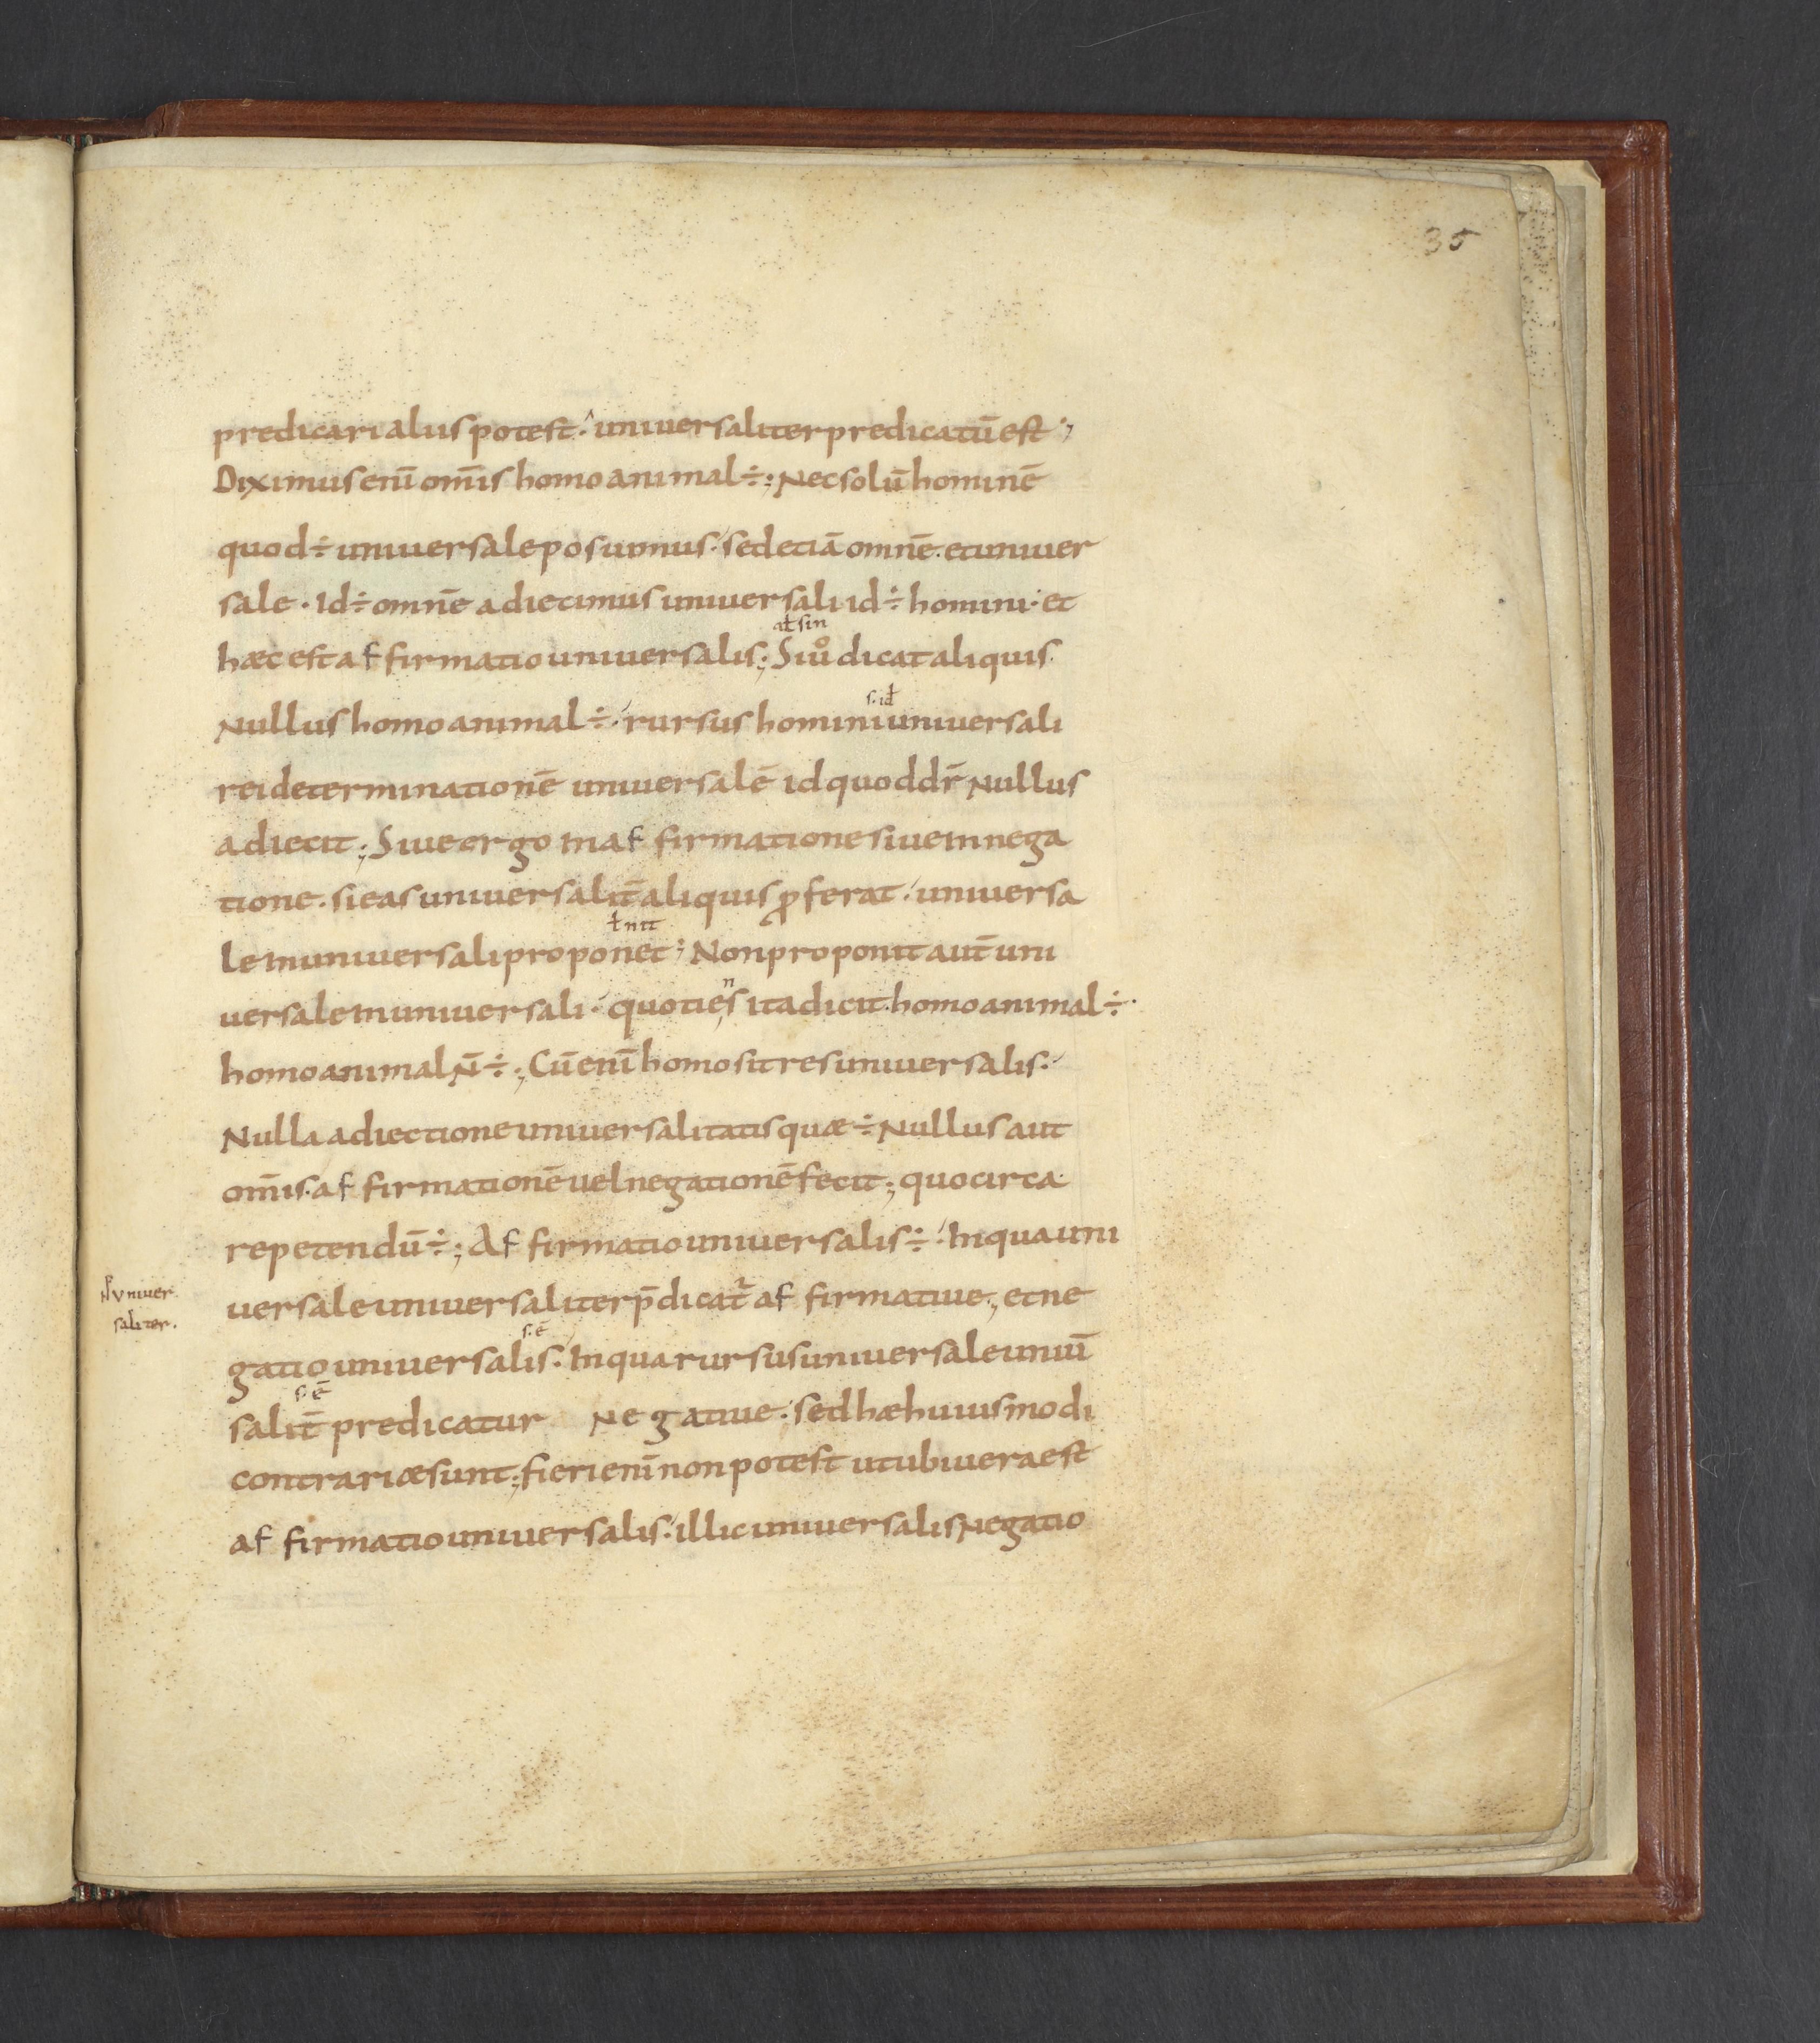 35
predicari aliis potest. universaliter predicatū est;
Diximus enī om̄is homo animal ÷; Nec solū hominē
quod ÷ universale posuimus. sed etiā omnē. et univer
sale. Id ÷ omnē adiecimus universali id ÷ homini. et
ał sin
hæc est affirmatio universalis; Si uͦ dicat aliquis.
s. id
Nullus homo animal ÷. rursus homini universali
rei determinationē universalē id quod dr̄ Nullus
adiecit; Sive ergo in affirmatione sive in nega
tione. si eas universalit̄ aliquis ꝓferat. universa
ł nit
le in universali proponet; Non proponit aut̄ uni
n
versale in universali. quoties ita dicit. homo animal ÷.
homo animal N̄ ÷; Cū enī homo sit res universalis.
Nulla adiectione universalitatis quæ ÷ Nullus aut
om̄is. affirmationē vel negationē fecit; quocirca
repetendū ÷; Affirmatio universalis ÷. In qua uni
Vniver
saliter.
versale universaliter p̄dicat᷑ affirmative; et ne
s. ē
gatio universalis. In qua rursus universale univ̄
s. ē
salit̄ predicatur Negative. sed hæ huiusmodi
contrariæ sunt; fieri enī non potest ut ubi vera est
affirmatio universalis. illic universalis Negatio